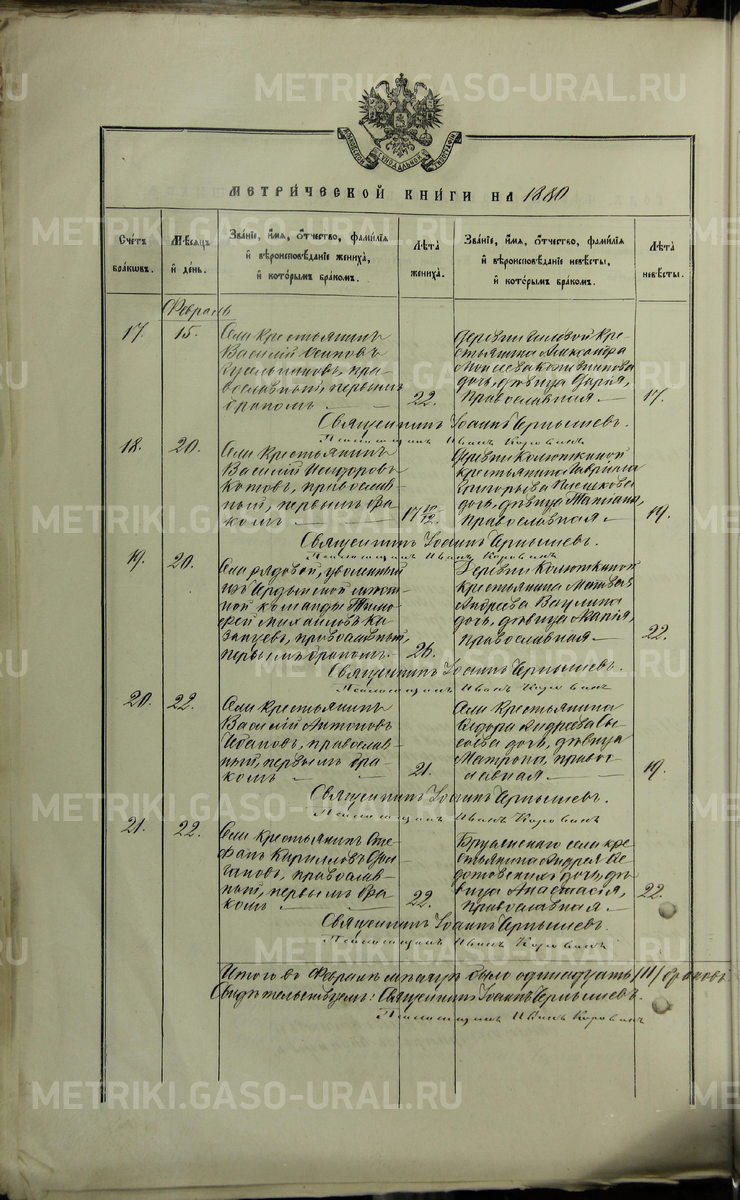 METRIKI.GASO-URAL.RU
МЕТРИЧЕСКОЙ КНИГИ НА 1880
Счетъ браковъ.
Мѣсяцъ и день.
Званіе, имя, отчество, фамилія и вѣроисповѣданіе жениха, и которымъ бракомъ.
Лѣта жениха.
Званіе, имя, отчество, фамилія и вѣроисповѣданіе невѣсты, и которымъ бракомъ.
Лѣта невѣсты.
Февраль
17. 15.
Села крестьянинъ
Василій Осиповъ
пра-
вославный, первымъ
бракомъ 22.
Деревни кре-
стьянина Александра
Моисеева Кожевникова
дочь, дѣвица Дарія,
православная 17.
Священникъ Іоаннъ Чернышевъ.
Псаломщикъ Иванъ Коровинъ
18. 20.
Села крестьянинъ
Василій Исидоровъ
Котовъ, православ-
ный, первымъ бра-
комъ 17
Деревни Колюткиной
крестьянина Гавриила
Григорьева
дочь, дѣвица Татіана,
православная 19.
Священникъ Іоаннъ Чернышевъ.
Псаломщикъ Иванъ Коровинъ
19. 20.
Села рядовой, уволенный
изъ мѣст-
ной команды Тимо-
фей Михайловъ Ка-
занцевъ, православный,
первымъ бракомъ. 26.
Деревни Колюткиной
крестьянина Матвея
Андреева Ваулина
дочь, дѣвица Марія,
православная 22.
Священникъ Іоаннъ Чернышевъ.
Псаломщикъ Иванъ Коровинъ
20. 22.
Села крестьянинъ
Василій Антоновъ
православ-
ный, первымъ бра-
комъ 21.
Села крестьянина
Ѳедора Андреева Сы-
соева дочь, дѣвица
Матрона, правос-
лавная 19.
Священникъ Іоаннъ Чернышевъ.
Псаломщикъ Иванъ Коровинъ
21. 22.
Села крестьянинъ Сте-
фанъ Кирилловъ
православ-
ный, первымъ бра-
комъ 22.
села кре-
стьянина Андрея Ѳе-
дотовскихъ дочь, дѣ-
вица Анастасія,
православная 22.
Священникъ Іоаннъ Чернышевъ.
Псаломщикъ Иванъ Коровинъ
Итого въ Февралѣ мѣсяцѣ было одинадцать /11/ браковъ
Свидѣтельствуемъ: Священникъ Іоаннъ Чернышевъ.
Псаломщикъ Иванъ Коровинъ
METRIKI.GASO-URAL.RU